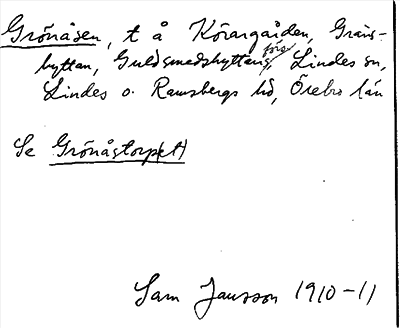 Grönåsen, t å Körargården, Gräns-
hyttan, Guldsmedshyttans förs, Lindes sn,
Lindes o. Ramsbergs hd, Örebro län
Se Grönåstorp(et)
Sam Jansson 1910-11